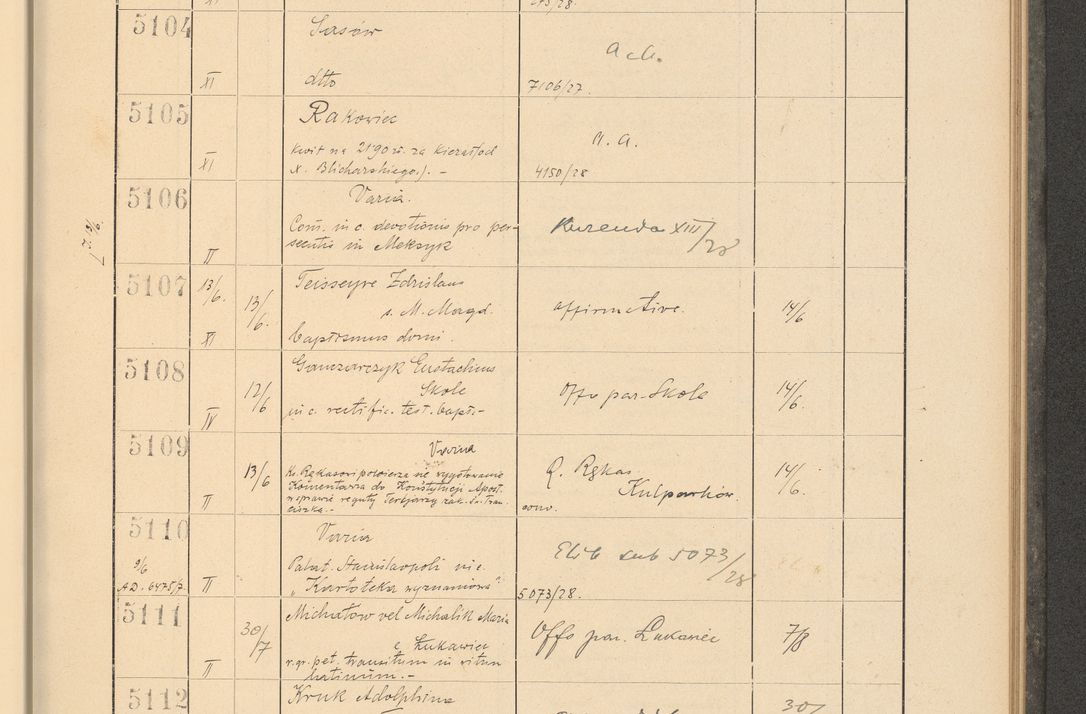 275/28.
5104
Sasów
a a.
XI
dtto
7106/27.
5105
Rakowiec
a. a.
XI
kwit na 2190 zł. za kierat (od
X. Blicharskiego). -
4150/28
5106
Varia.
Com. in c. devotionis pro per-
secutis in Meksyk
Kurenda XIII/28
II
5107
13/6.
13/6.
Teisseyre Zdzislaus
s. M. Magd.
baptismus domi.
affirmative.
14/6
XI
5108
12/6
Ganczarczyk Eustachius
Skole
in c. rectific. test. bapt.-
Offo par. Skole
14/6.
IV
5109
13/6
Varia
Ks. Rękasowi powierza się wygotowanie
Komentarza do Konstytucji Apost.
w sprawie reguły Tercjarzy zak. św. Fran-
ciszka.-
R. Rękas
Kulparków.
14/6.
II
5110
Varia
9/6
A.D. 6475/7.
II
Palat. Stanislaopoli in c.
"Kartoteka wyznaniowa"
Elib sub 5073/28
5073/28.
5111
30/7
Michałow vel Michalik Maria
e Łukawiec
r. gr. pet. transitum in ritum
latinum.-
Offo par. Łukawiec
7/8
II
5112
Kruk Adolphina
30/